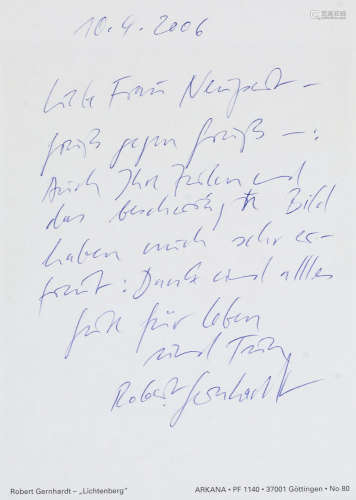 10.4.2006
Liebe Frau Neupert –
Gruß gegen Gruß –:
Auch Ihre Zeilen und
das Bild
haben mich sehr er-
freut: Dank und alles
Gute für Leben
und
Robert Gernhardt
Robert Gernhardt – „Lichtenberg"
ARKANA • PF 1140 • 37001 Göttingen • No 80